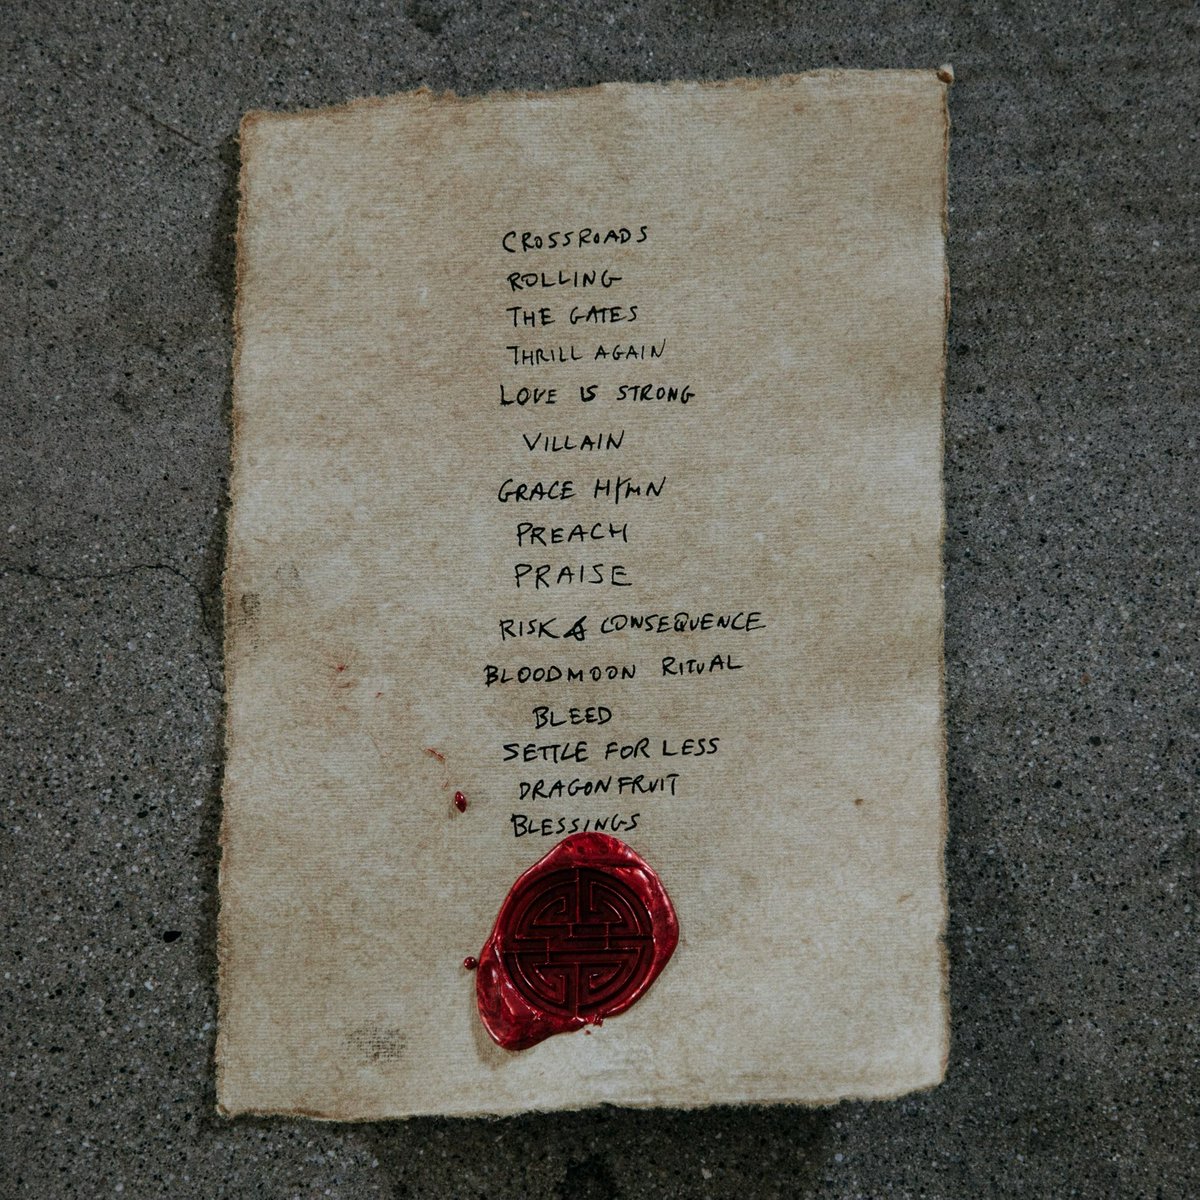 CROSSROADS
ROLLING
THE GATES
THRILL AGAIN
LOVE IS STRONG
VILLAIN
GRACE HYMN
PREACH
PRAISE
RISK & CONSEQUENCE
BLOODMOON RITUAL
BLEED
SETTLE FOR LESS
DRAGONFRUIT
BLESSINGS